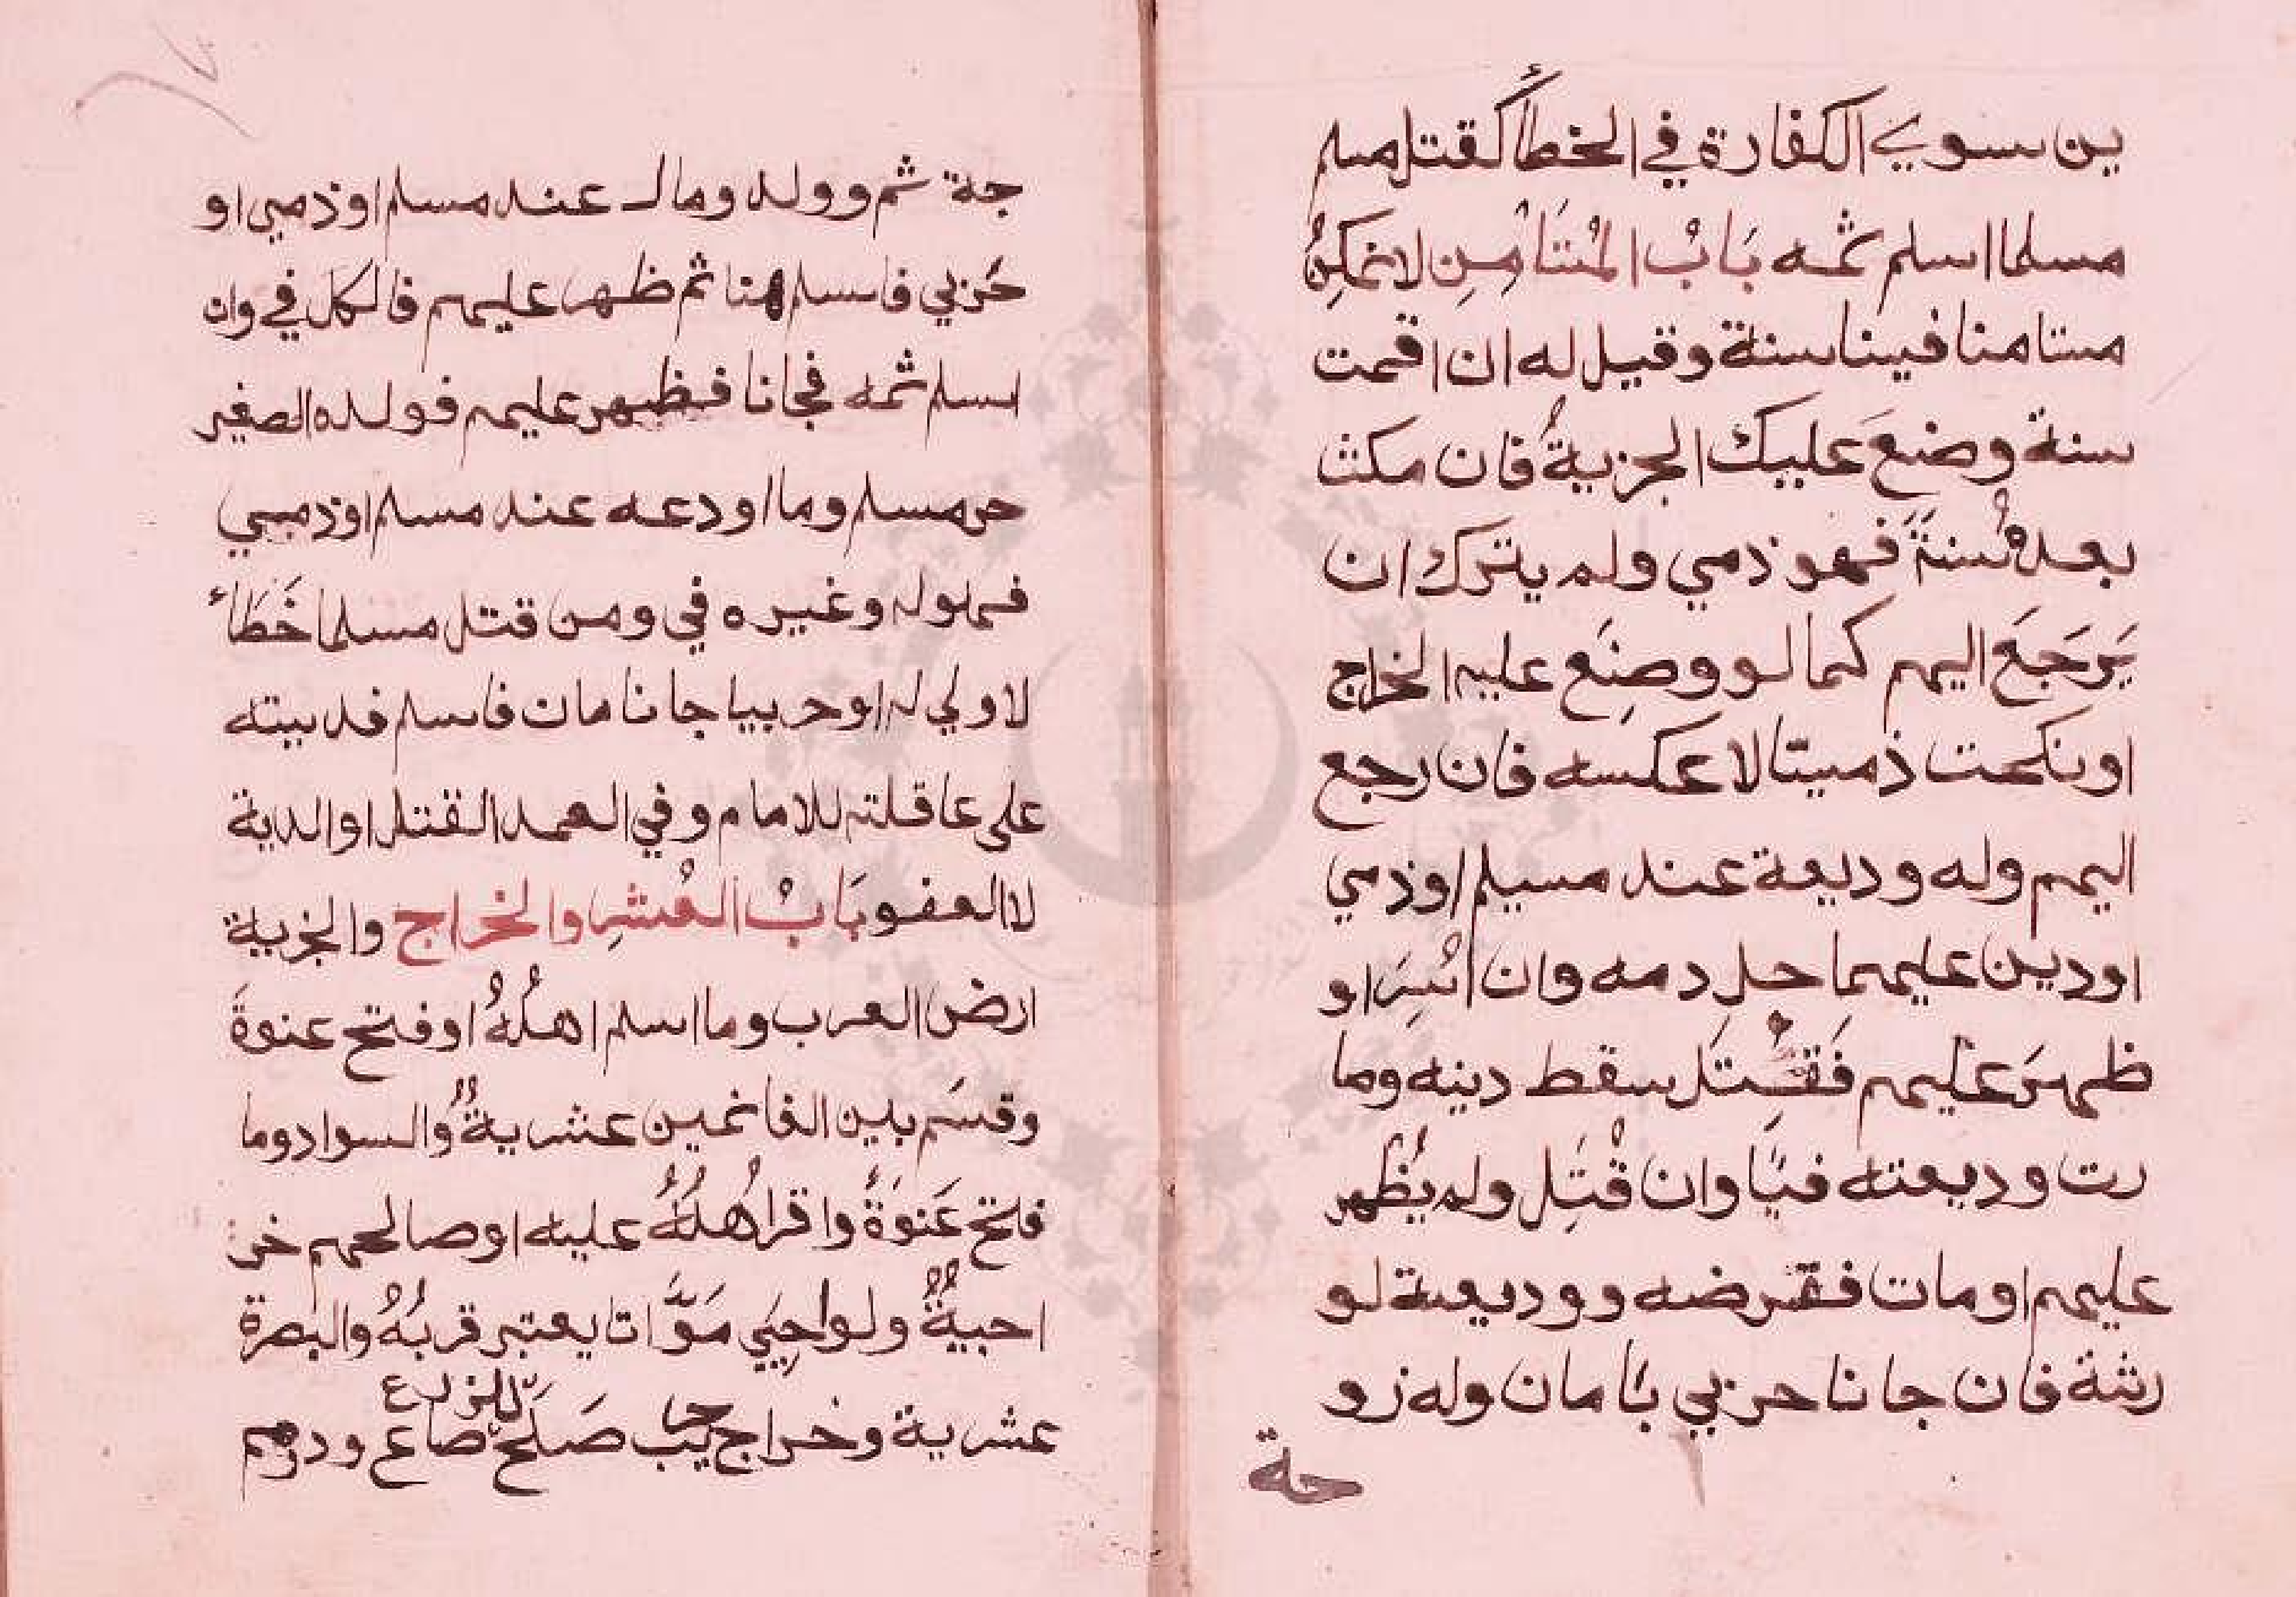 ين سوي الكفارة في الخطأ كقتل مسلم
مسلما اسلم ثمه بَابُ المُسْتَأْمِنِ لا نمكن
مستامنا فينا سنة وقيل له ان اقمت
سنة وضع عليك الجزيةُ فان مكث
بعده سنةً فهو ذمي ولم يترك ان
يَرجَعَ اليهم كما لو وضِع عليه الخراج
او نكحت ذميتا لا عكسه فان رجع
اليهم وله وديعة عند مسلم او ذمي
او دين عليهما حل دمه وان اُسِرَ او
ظهرَ عليهم فَقُتِلَ سقط دينه وما
رت وديعته فيًا وان قُتِل ولم يُظهر
عليهم او مات فقرضه ووديعته لو
رثة فان جانا حربي بأمان وله زو
جة
جة ثم وولد ومال عند مسلم او ذمي او
حَربي فاسلم هنا ثم ظهر عليهم فالكل في وان
اسلم ثمه فجانا فظهر عليهم فولده الصغير
حر مسلم وما اودعه عند مسلم او ذمي
فهو له وغيره في ومن قتل مسلما خَطَاء
لا ولي له او حربيا جانا بامان فاسلم فديته
على عاقلته للامام وفي العمد القتل او الدية
لا العفو بَابُ العُشرِ والخراج والجزية
ارض العرب وما اسلم اهلُهُ او فتح عنوةَ
وقسَم بين الغانمين عشريةٌ والسواد وما
فتح عَنوَةً واقر اهلُهُ عليه او صالحهم خر
اجيةٌ ولو احيي مَوَاتا يعتبر قربُهُ والبصرة
عشرية وخراج جريب صَلَحَ للزرع صاع ودرهم